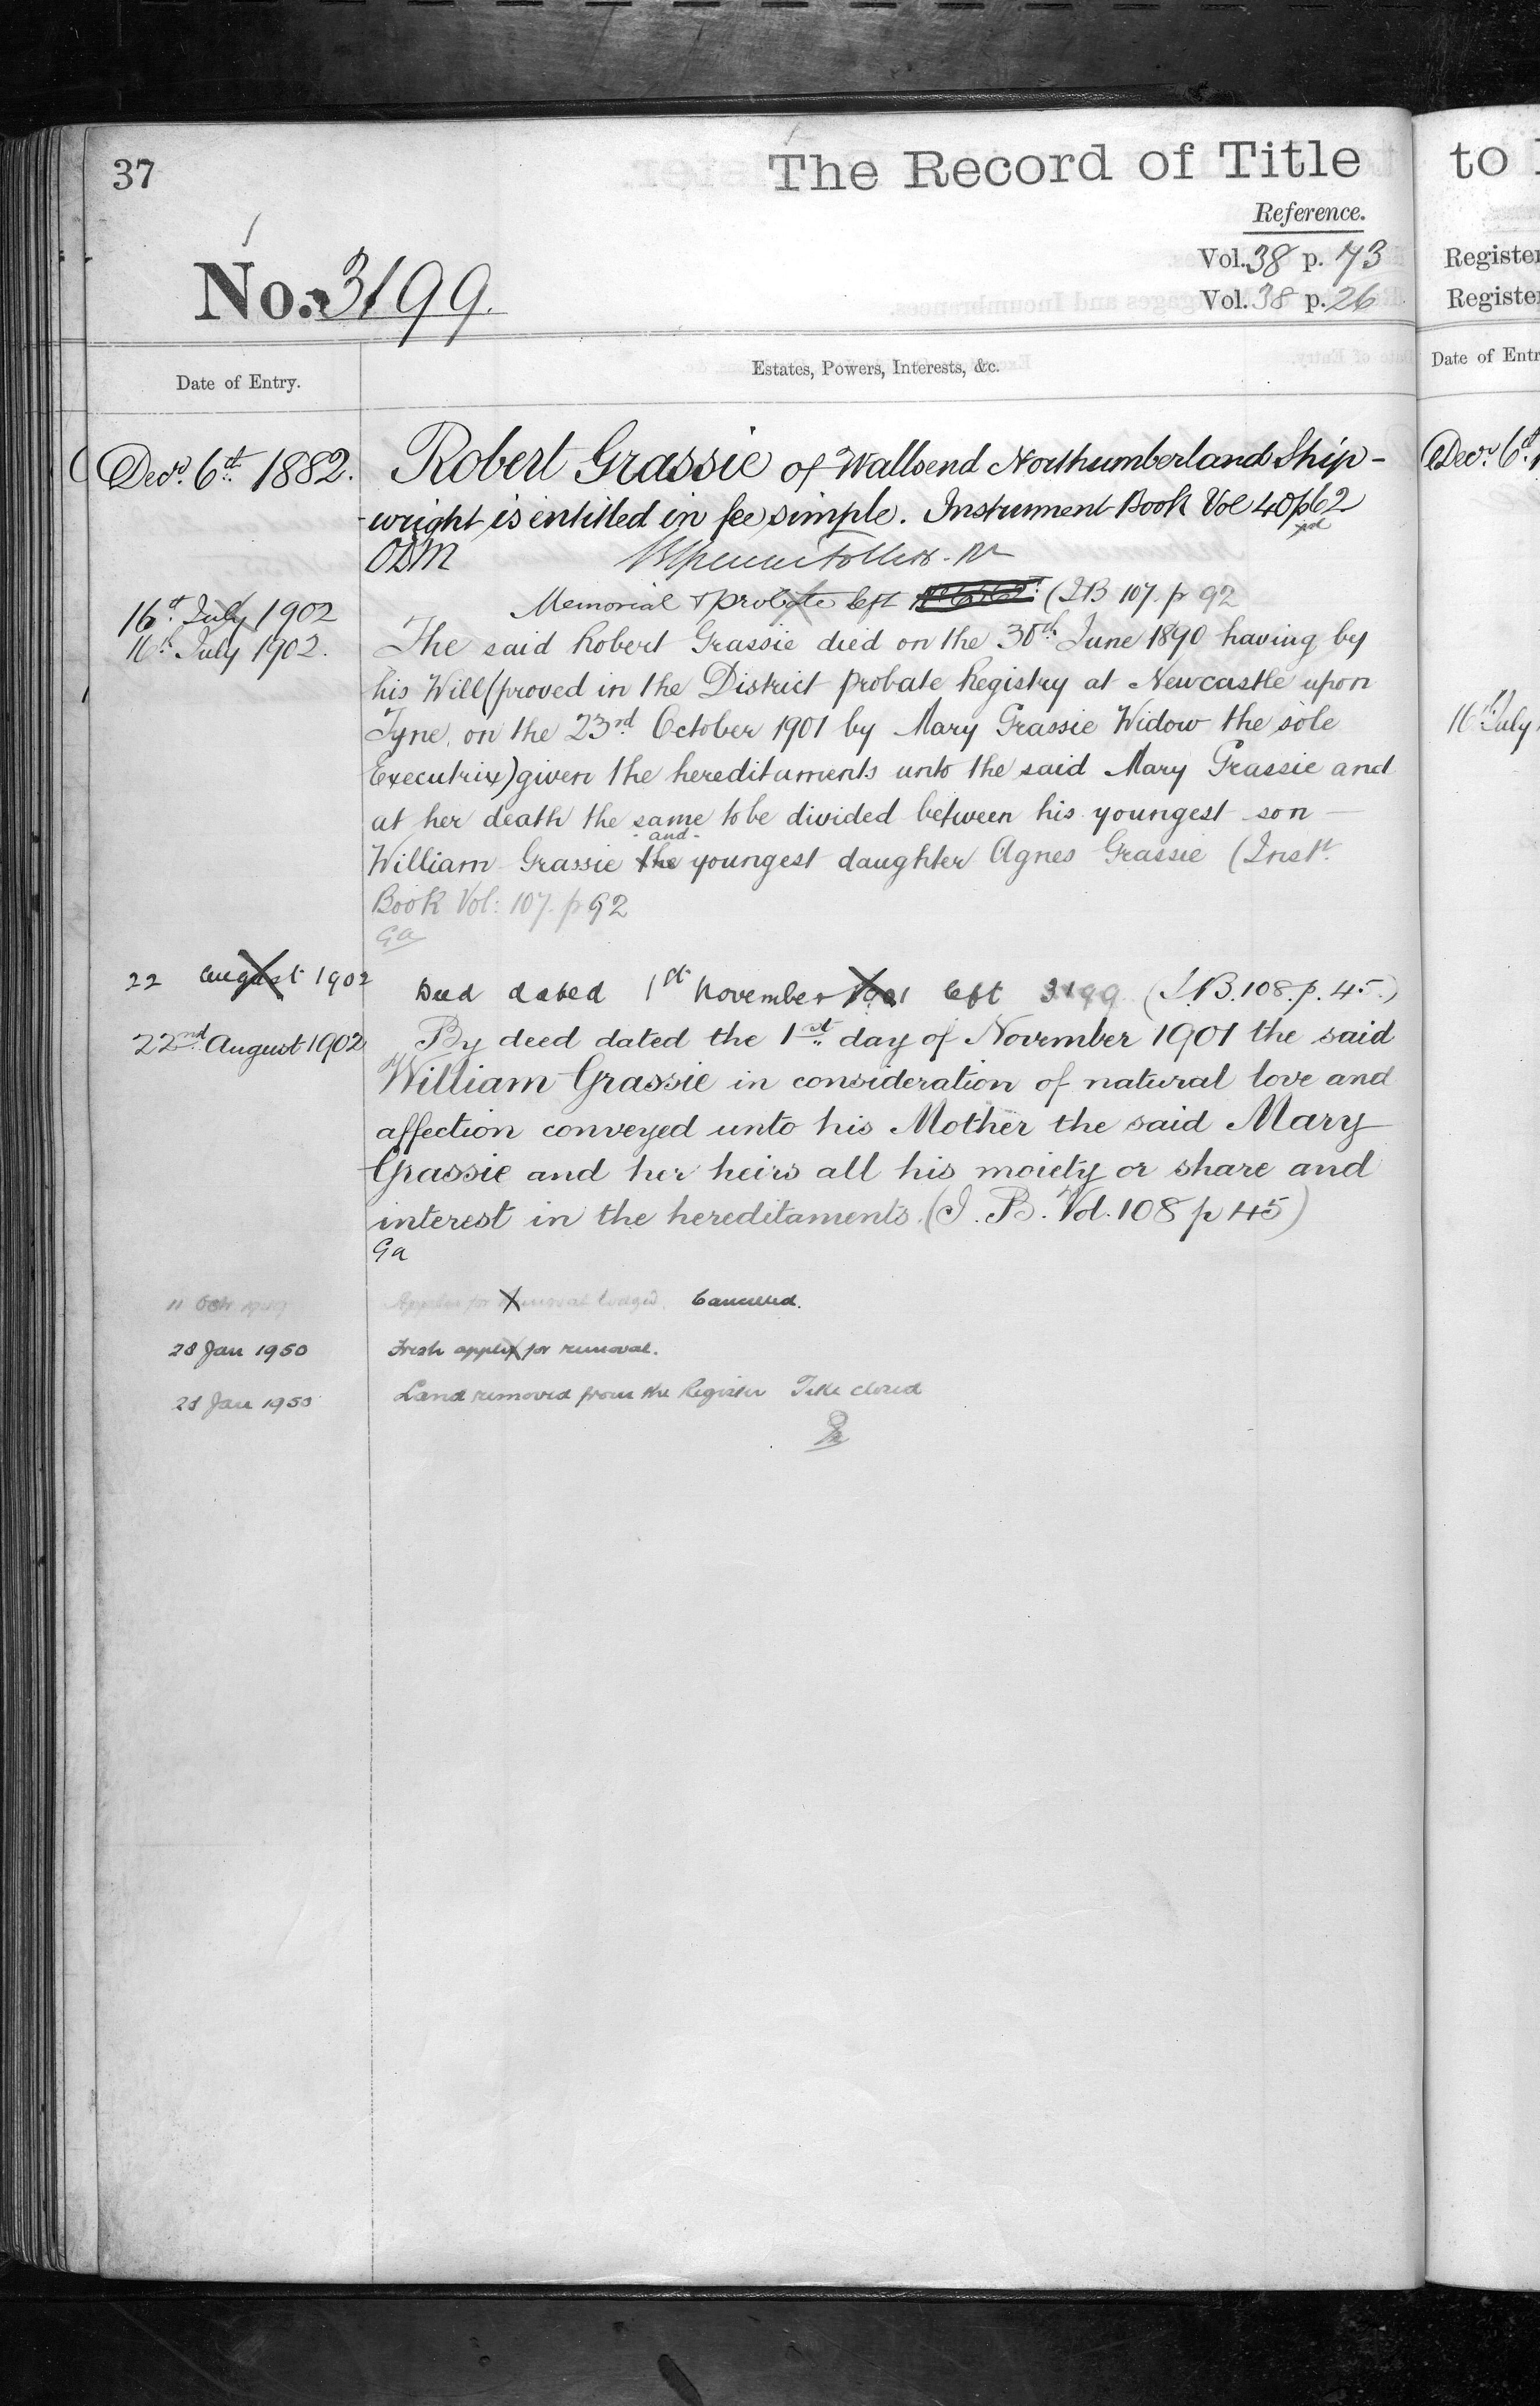 37
The Record of Title
to
Reference.
Vol. 38 p. 73
Vol. 38 p. 26
Register
Register
No. 3199.
Date of Entry.
Estates, Powers, Interests, &c.
Date of Entr
Decr. 6th 1882.
Robert Grassie of Wallsend Northumberland Ship-
-wright is entitled in fee simple. Instrument Book Vol 40 p 62
ODM
16th July 1902
Memorial & Probate left (I B 107. p 92
16th July 1902.
The said Robert Grassie died on the 30th June 1890 having by
his Will (proved in the District Probate Registry at Newcastle upon
Tyne, on the 23rd October 1901 by Mary Grassie Widow the sole
Executrix) given the hereditaments unto the said Mary Grassie and
at her death the same to be divided between his youngest son
William Grassie the and youngest daughter Agnes Grassie (Inst.
Book Vol: 107. p 92
Ga
22 August 1902
Deed dated 1st November 1901 left 3199 (I.B. 108. p. 45.)
22nd August 1902
By deed dated the 1st day of November 1901 the said
William Grassie in consideration of natural love and
affection conveyed unto his Mother the said Mary
Grassie and her heirs all his moiety or share and
interest in the hereditaments. (I. B. Vol. 108 p 45)
Ga
11 Oct 1949
Applin for removal lodged. Cancelled.
28 Jan 1950
Fresh applin for removal.
28 Jan 1950
Land removed from the Register Title closed
Decr. 6th
16th July